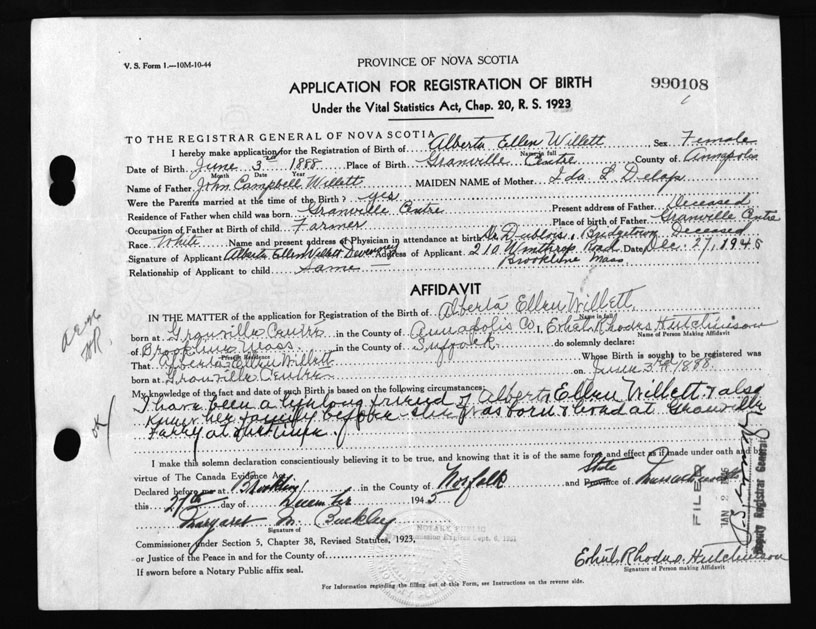 V. S. Form 1.—10M-10-44
PROVINCE OF NOVA SCOTIA
APPLICATION FOR REGISTRATION OF BIRTH
990108
Under the Vital Statistics Act, Chap. 20, R. S. 1923
TO THE REGISTRAR GENERAL OF NOVA SCOTIA
I hereby make application for the Registration of Birth of Alberta Ellen Willett Sex Female
Name in full
Date of Birth June 3rd 1888 Place of Birth Granville Centre County of Annapolis
Month Date Year
Name of Father John Campbell Willett MAIDEN NAME of Mother Ida L Delap
Were the Parents married at time of the Birth? yes
Residence of Father when child was born Granville Centre Present address of Father Deceased
Occupation of Father at Birth of child Farmer Place of birth of Father Granville Centre
Race White Name and present address of Physician in attendance at birth Bridgetown Deceased
Signature of Applicant Alberta Ellen Willett Address of Applicant 210 Winthrop Road Date Dec. 27, 1945
Brookline Mass
Relationship of Applicant to child Same
AFFIDAVIT
IN THE MATTER of the application for Registration of the Birth of Alberta Ellen Willett
Name in full
born at Granville Centre in the County of Annapolis Co I, Ethel Rhodes Hutchinson
Name of Person Making Affidavit
of Brookline Mass. in the County of Suffolk do solemnly declare:
Present Residence
That Alberta Ellen Willett Whose Birth is sought to be registered was
born at Granville Centre on June 3rd 1888.
My knowledge of the fact and date of such Birth is based on the following circumstances:
I have been a lifelong friend of Alberta Ellen Willett & also
knew her family before she was born & lived at Granville
Ferry at that time.
I make this solemn declaration conscientiously believing it to be true, and knowing that it is of the same force and effect as if made under oath and by
virtue of The Canada Evidence Act.
Declared before me at Brookline in the County of Norfolk and Province of State Massachusetts
this 27th day of December 1945
Margaret M. Buckley
Signature of
NOTARY PUBLIC
Commission Expires Sept. 6, 1951
Commissioner under Section 5, Chapter 38, Revised Statutes, 1923,
or Justice of the Peace in and for the County of
If sworn before a Notary Public affix seal.
Ethel Rhodes Hutchinson
Signature of Person making Affidavit
For Information regarding the filling out of this Form, see Instructions on the reverse side.
FILED
JAN 2 1946
Deputy Registrar General